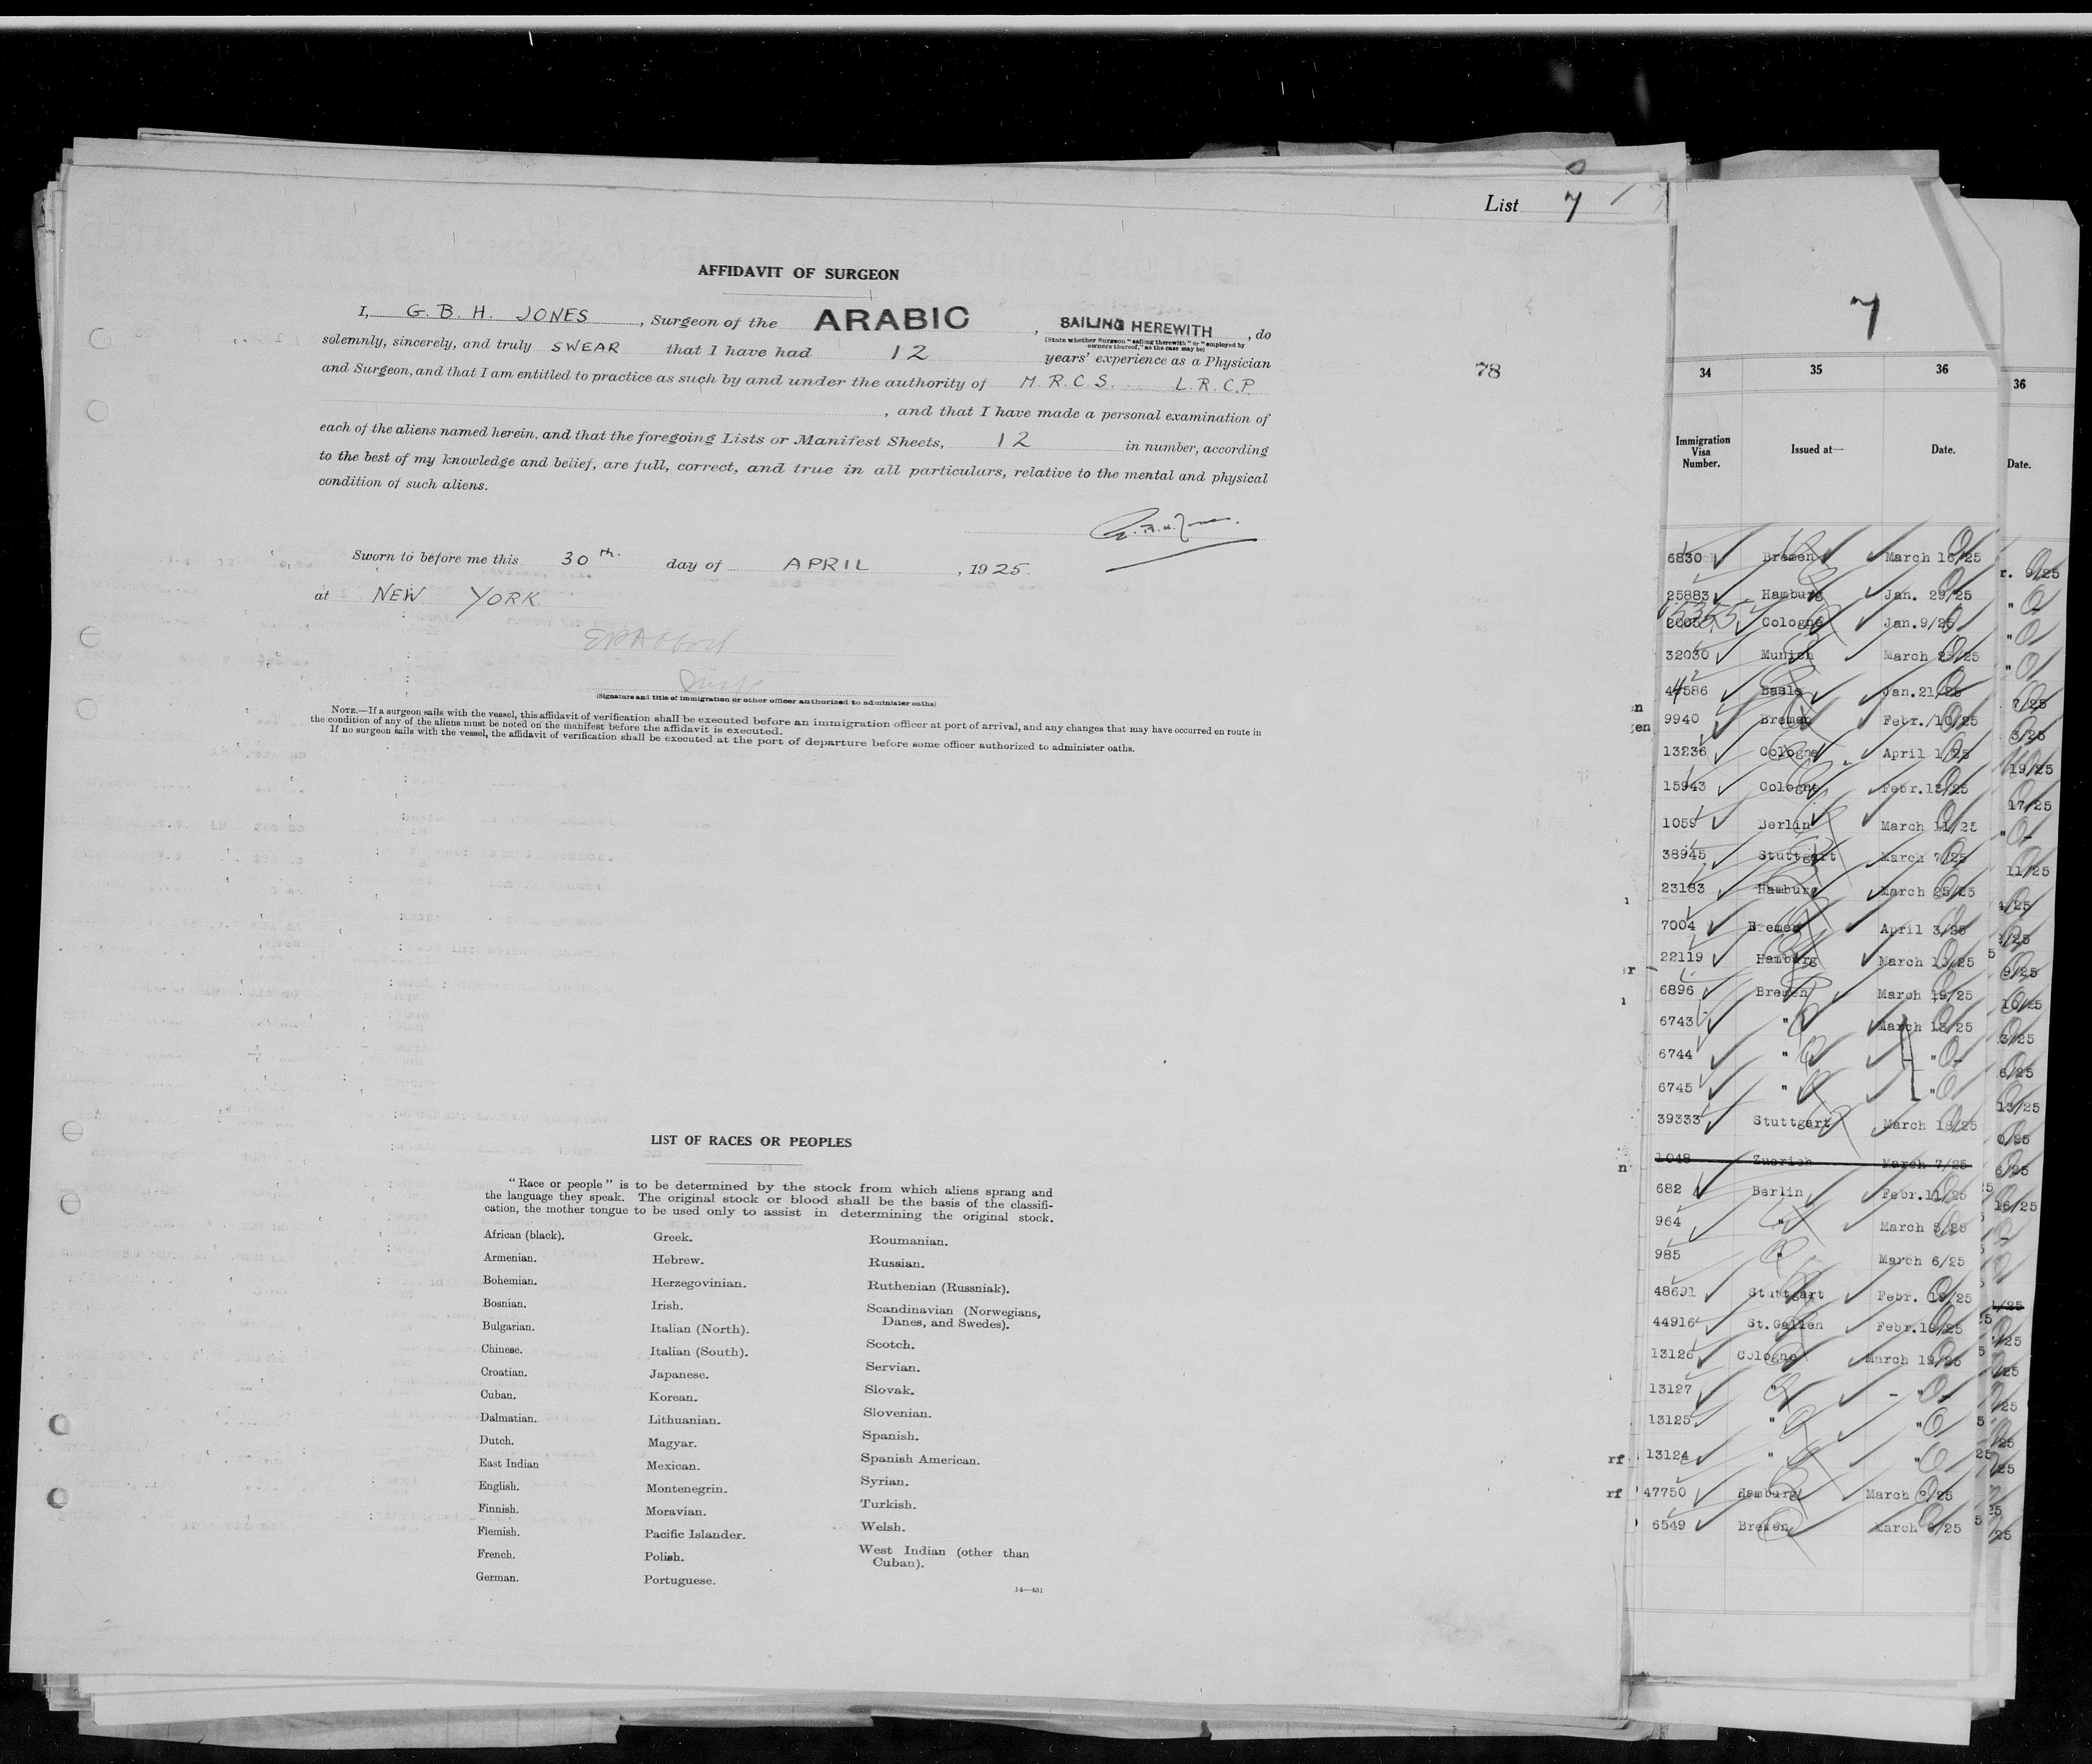 List 7
AFFIDAVIT OF SURGEON
I, G. B. H. JONES, Surgeon of the ARABIC, SAILING HEREWITH, do
(State whether Surgeon "sailing therewith" or "employed by
owners thereof," as the case may be)
solemnly, sincerely, and truly SWEAR that I have had 12 years' experience as a Physician
and Surgeon, and that I am entitled to practice as such by and under the authority of M. R. C. S. L. R. C. P.
, and that I have made a personal examination of
each of the aliens named herein, and that the foregoing Lists or Manifest Sheets, 12 in number, according
to the best of my knowledge and belief, are full, correct, and true in all particulars, relative to the mental and physical
condition of such aliens.
Sworn to before me this 30th. day of APRIL, 1925.
at NEW YORK.
(Signature and title of immigration or other officer authorized to administer oaths)
NOTE.—If a surgeon sails with the vessel, this affidavit of verification shall be executed before an immigration officer at port of arrival, and any changes that may have occurred en route in
the condition of any of the aliens must be noted on the manifest before the affidavit is executed.
If no surgeon sails with the vessel, the affidavit of verification shall be executed at the port of departure before some officer authorized to administer oaths.
78
LIST OF RACES OR PEOPLES
"Race or people" is to be determined by the stock from which aliens sprang and
the language they speak. The original stock or blood shall be the basis of the classifi-
cation, the mother tongue to be used only to assist in determining the original stock.
African (black).
Armenian.
Bohemian.
Bosnian.
Bulgarian.
Chinese.
Croatian.
Cuban.
Dalmatian.
Dutch.
East Indian
English.
Finnish.
Flemish.
French.
German.
Greek.
Hebrew.
Herzegovinian.
Irish.
Italian (North).
Italian (South).
Japanese.
Korean.
Lithuanian.
Magyar.
Mexican.
Montenegrin.
Moravian.
Pacific Islander.
Polish.
Portuguese.
Roumanian.
Russian.
Ruthenian (Russniak).
Scandinavian (Norwegians,
Danes, and Swedes).
Scotch.
Servian.
Slovak.
Slovenian.
Spanish.
Spanish American.
Syrian.
Turkish.
Welsh.
West Indian (other than
Cuban).
14—431
7
34 35 36
Immigration
Visa
Number. Issued at— Date.
6830 Bremen March 16/25
25883 Hamburg Jan. 29/25
Cologne Jan.9/25
32030 Munich March 23/25
Basle Jan.21/25
9940 Bremen Febr./10/25
13236 Cologne April 1/25
15943 Cologne Febr.13/25
1059 Berlin March 11/25
38945 Stuttgart March 7/25
23183 Hamburg March 25/25
7004 Bremen April 3/25
22119 Hamburg March 13/25
6896 Bremen March 19/25
6743 " March 13/25
6744 " "
6745 " "
39333 Stuttgart March 18/25
1048 Zuerich March 7/25
682 Berlin Febr.11/25
964 " March 5/25
985 " March 6/25
48691 Stuttgart Febr. 19/25
44916 St.Gallen Febr.19/25
13126 Cologne March 19/25
13127 " - " -
13125 " "
13124 " "
47750 Hamburg March 2/25
6549 Bremen March 6/25
36
Date.
r. 9/25
"
"
"
7/25
3/25
19/25
17/25
"
11/25
4/25
9/25
10/25
3/25
6/25
13/25
6/25
16/25